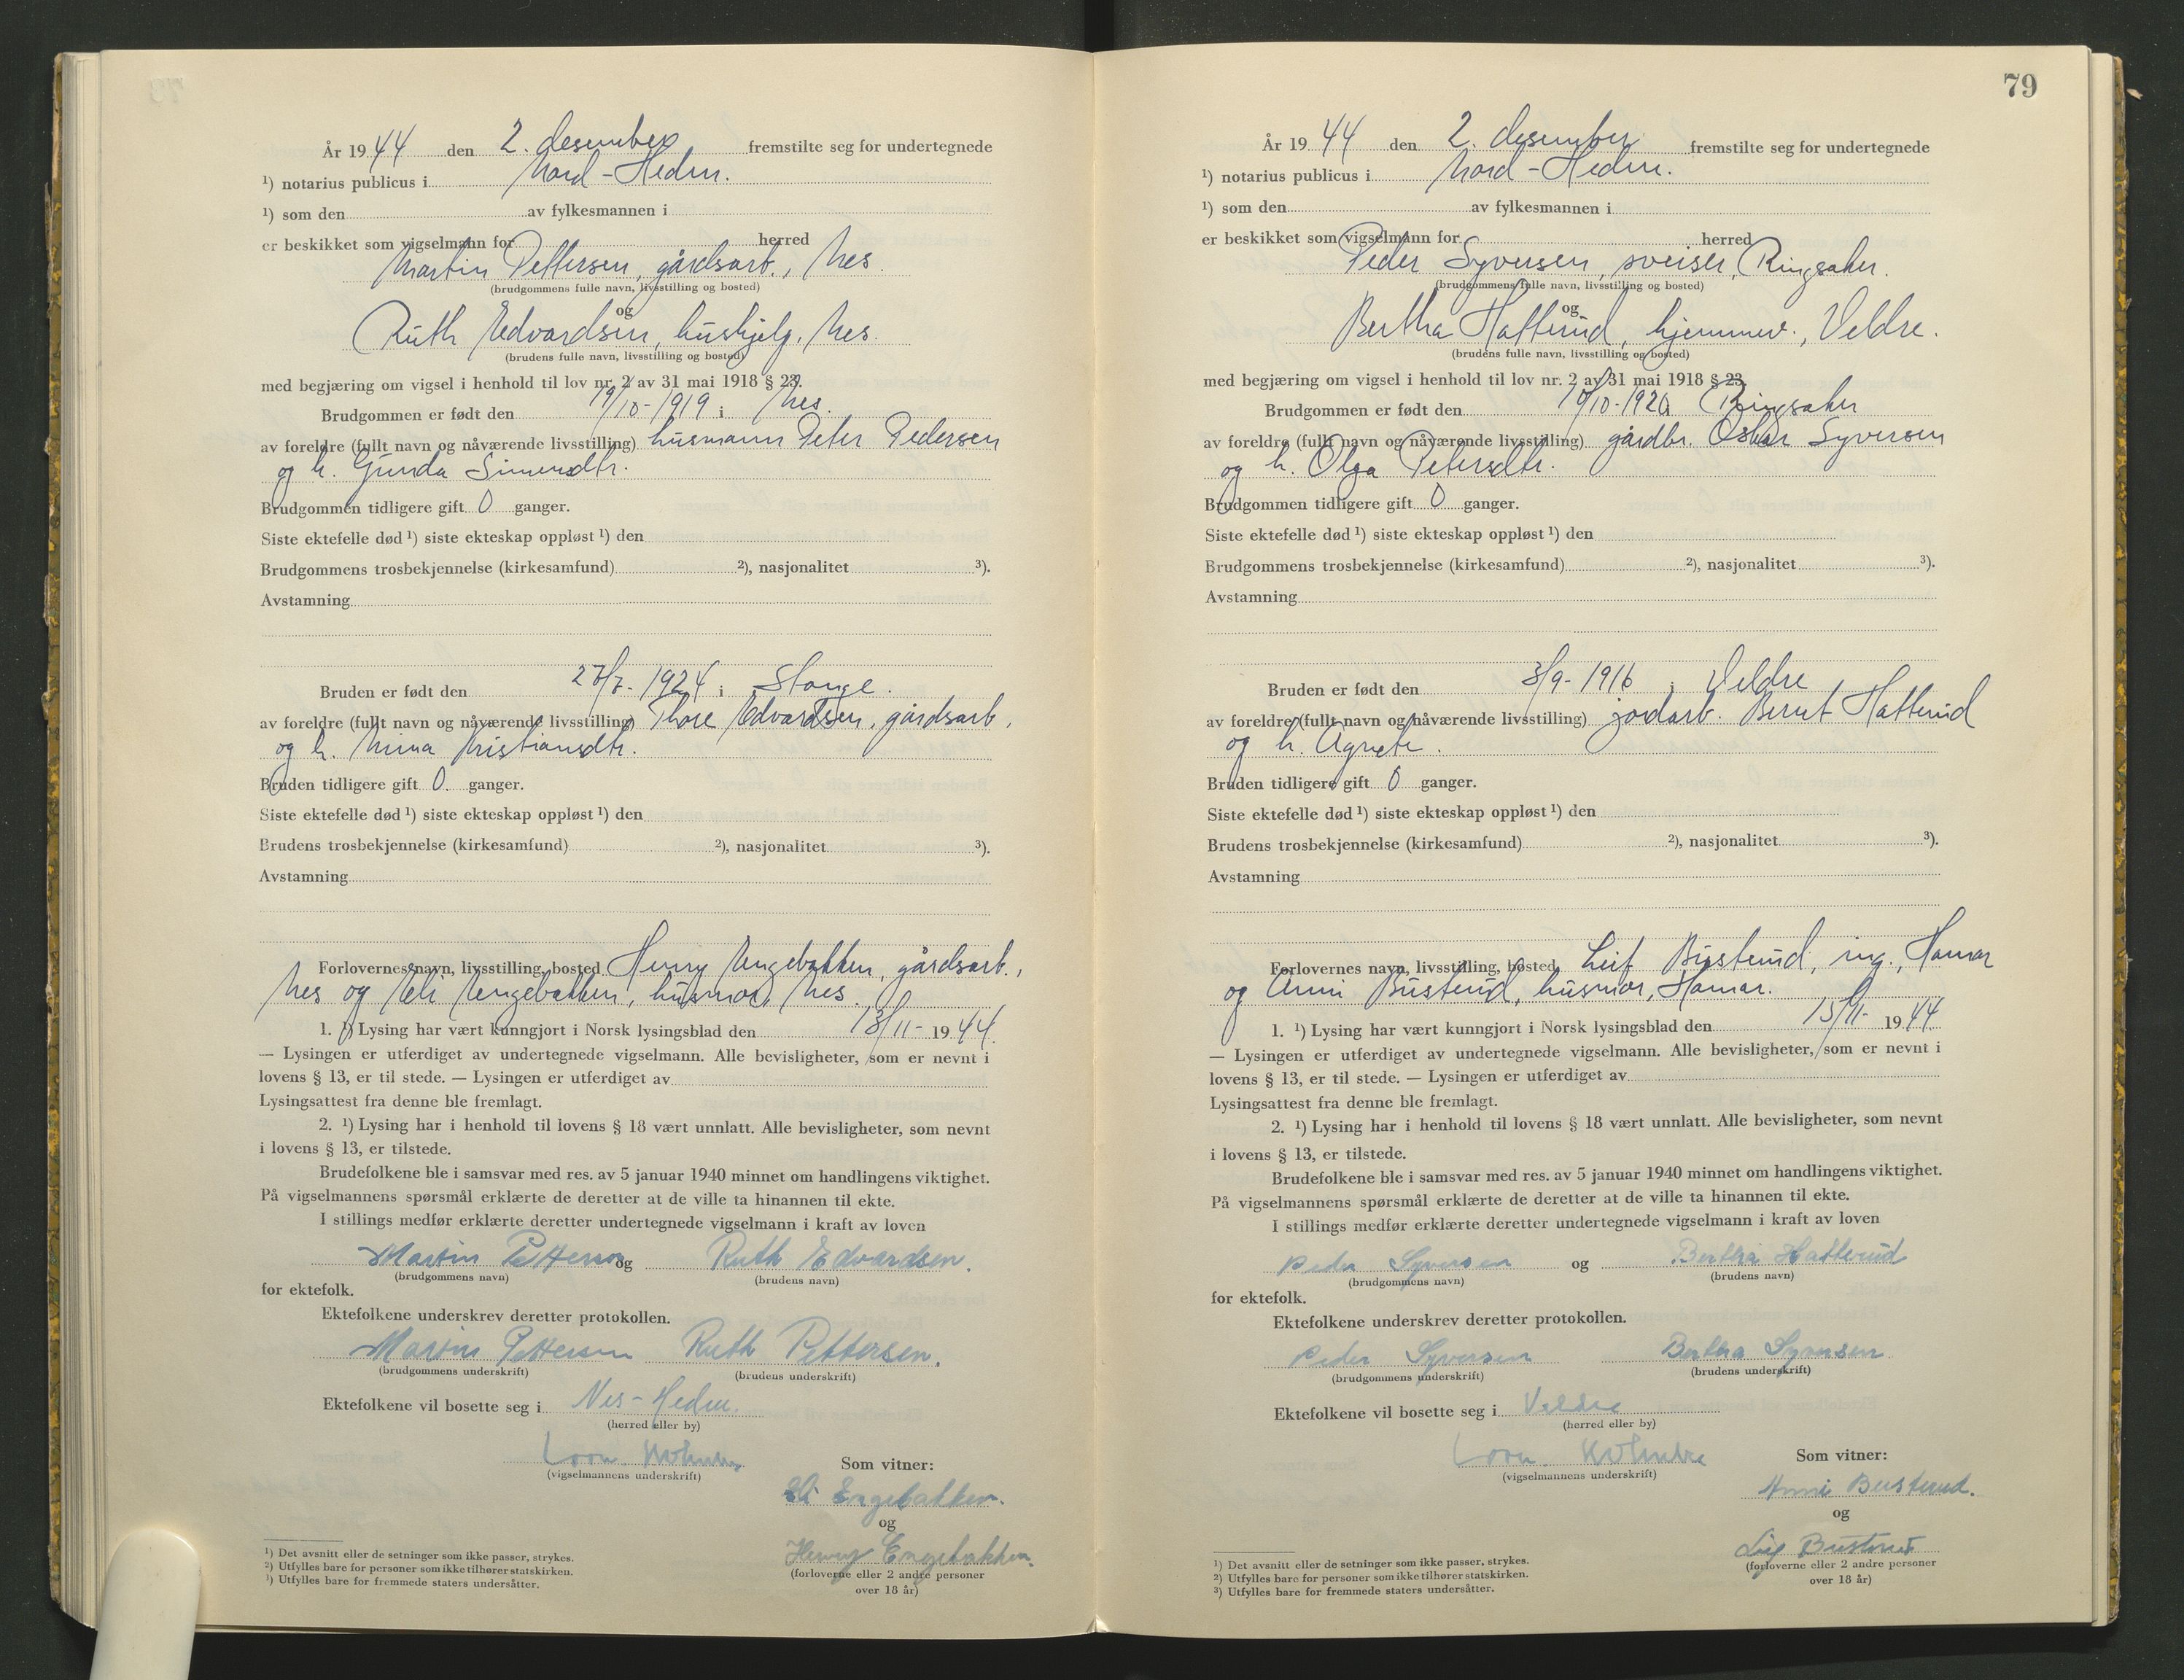 År 19 44 den 2. desember fremstilte seg for undertegnede
¹) notarius publicus i Nord-Hedm.
¹) som den av fylkesmannen i
er beskikket som vigselmann for herred
Martin Pettersen, gårdsarb., Nes.
(brudgommens fulle navn, livsstilling og bosted)
og
Ruth Edvardsen, hushjelp, Nes.
(brudens fulle navn, livsstilling og bosted)
med begjæring om vigsel i henhold til lov nr. 2 av 31 mai 1918 § 23.
Brudgommen er født den 19/10-1919 i Nes.
av foreldre (fullt navn og nåværende livsstilling) husmann Peter Pedersen
og h. Gunda Simensdtr.
Brudgommen tidligere gift 0 ganger.
Siste ektefelle død ¹) siste ekteskap oppløst ¹) den
Brudgommens trosbekjennelse (kirkesamfund) ²), nasjonalitet ³).
Avstamning
Bruden er født den 27/7-1924 i Stange.
av foreldre (fullt navn og nåværende livsstilling) Thore Edvardsen, gårdsarb.,
og h. Mina Kristiansdtr.
Bruden tidligere gift 0. ganger.
Siste ektefelle død ¹) siste ekteskap oppløst ¹) den
Brudens trosbekjennelse (kirkesamfund) ²), nasjonalitet ³).
Avstamning
Forlovernes navn, livsstilling, bosted Henry Engebakken, gårdsarb.,
Nes og Eli Engebakken, husmor, Nes.
1. ¹) Lysing har vært kunngjort i Norsk lysingsblad den 13/11- 19 44.
— Lysingen er utferdiget av undertegnede vigselmann. Alle bevisligheter, som er nevnt i
lovens § 13, er til stede. — Lysingen er utferdiget av
Lysingsattest fra denne ble fremlagt.
2. ¹) Lysing har i henhold til lovens § 18 vært unnlatt. Alle bevisligheter, som nevnt
i lovens § 13, er tilstede.
Brudefolkene ble i samsvar med res. av 5 januar 1940 minnet om handlingens viktighet.
På vigselmannens spørsmål erklærte de deretter at de ville ta hinannen til ekte.
I stillings medfør erklærte deretter undertegnede vigselmann i kraft av loven
Martin Pettersen og Ruth Edvardsen.
(brudgommens navn) (brudens navn)
for ektefolk.
Ektefolkene underskrev deretter protokollen.
Martin Pettersen Ruth Pettersen.
(brudgommens underskrift) (brudens underskrift)
Ektefolkene vil bosette seg i Nes-Hedm.
(herred eller by)
(vigselmannens underskrift)
Som vitner:
Eli Engebakken.
og
Henry Engebakken.
(forloverne eller 2 andre personer
over 18 år)
¹) Det avsnitt eller de setninger som ikke passer, strykes.
²) Utfylles bare for personer som ikke tilhører statskirken.
³) Utfylles bare for fremmede staters undersåtter.
79
År 19 44 den 2. desember fremstilte seg for undertegnede
¹) notarius publicus i Nord-Hedm.
¹) som den av fylkesmannen i
er beskikket som vigselmann for herred
Peder Syversen, sveiser, Ringsaker.
(brudgommens fulle navn, livsstilling og bosted)
og
Bertha Hatterud, hjemmev., Veldre.
(brudens fulle navn, livsstilling og bosted)
med begjæring om vigsel i henhold til lov nr. 2 av 31 mai 1918 § 23.
Brudgommen er født den 10/10-1920 i Ringsaker
av foreldre (fullt navn og nåværende livsstilling) gårdbr. Oskar Syversen
og h. Olga Petersdtr.
Brudgommen tidligere gift 0 ganger.
Siste ektefelle død ¹) siste ekteskap oppløst ¹) den
Brudgommens trosbekjennelse (kirkesamfund) ²), nasjonalitet ³).
Avstamning
Bruden er født den 3/9-1916 i Veldre
av foreldre (fullt navn og nåværende livsstilling) jordarb. Bernt Hatterud
og h. Agnete.
Bruden tidligere gift 0 ganger.
Siste ektefelle død ¹) siste ekteskap oppløst ¹) den
Brudens trosbekjennelse (kirkesamfund) ²), nasjonalitet ³).
Avstamning
Forlovernes navn, livsstilling, bosted Leif Busterud, ing., Hamar
og Anni Busterud, husmor, Hamar.
1. ¹) Lysing har vært kunngjort i Norsk lysingsblad den 15/11- 19 44
— Lysingen er utferdiget av undertegnede vigselmann. Alle bevisligheter, som er nevnt i
lovens § 13, er til stede. — Lysingen er utferdiget av
Lysingsattest fra denne ble fremlagt.
2. ¹) Lysing har i henhold til lovens § 18 vært unnlatt. Alle bevisligheter, som nevnt
i lovens § 13, er tilstede.
Brudefolkene ble i samsvar med res. av 5 januar 1940 minnet om handlingens viktighet.
På vigselmannens spørsmål erklærte de deretter at de ville ta hinannen til ekte.
I stillings medfør erklærte deretter undertegnede vigselmann i kraft av loven
Peder Syversen og Bertha Hatterud
(brudgommens navn) (brudens navn)
for ektefolk.
Ektefolkene underskrev deretter protokollen.
Peder Syversen Bertha Syversen
(brudgommens underskrift) (brudens underskrift)
Ektefolkene vil bosette seg i Veldre
(herred eller by)
(vigselmannens underskrift)
Som vitner:
Anni Busterud.
og
Leif Busterud
(forloverne eller 2 andre personer
over 18 år)
¹) Det avsnitt eller de setninger som ikke passer, strykes.
²) Utfylles bare for personer som ikke tilhører statskirken.
³) Utfylles bare for fremmede staters undersåtter.